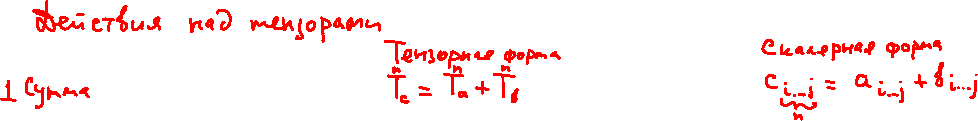 Действия над тензорами
Тензорная форма
Скалярная форма
1 Сумма
ⁿT_c = ⁿT_a + ⁿT_b
c_{i...j} = a_{i...j} + b_{i...j}
n